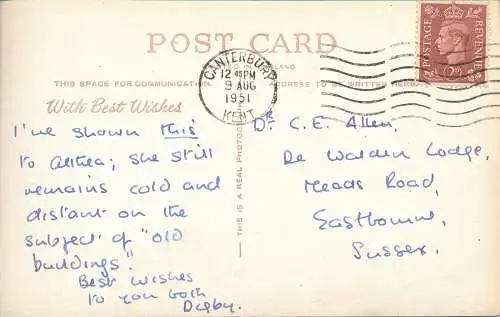 POST CARD
THIS SPACE FOR COMMUNICATION ADDRESS TO BE WRITTEN HERE
With Best Wishes
CANTERBURY
12 45 PM
9 AUG
1951
KENT
POSTAGE
REVENUE
THIS IS A REAL PHOTOGRAPH
I've shown this
to Althea; she still
remains cold and
distant on the
subject of "old
buildings".
Best wishes
to you both
Digby.
Dr C. E. Allen,
De Walden Lodge,
Meads Road,
Eastbourne,
Sussex.